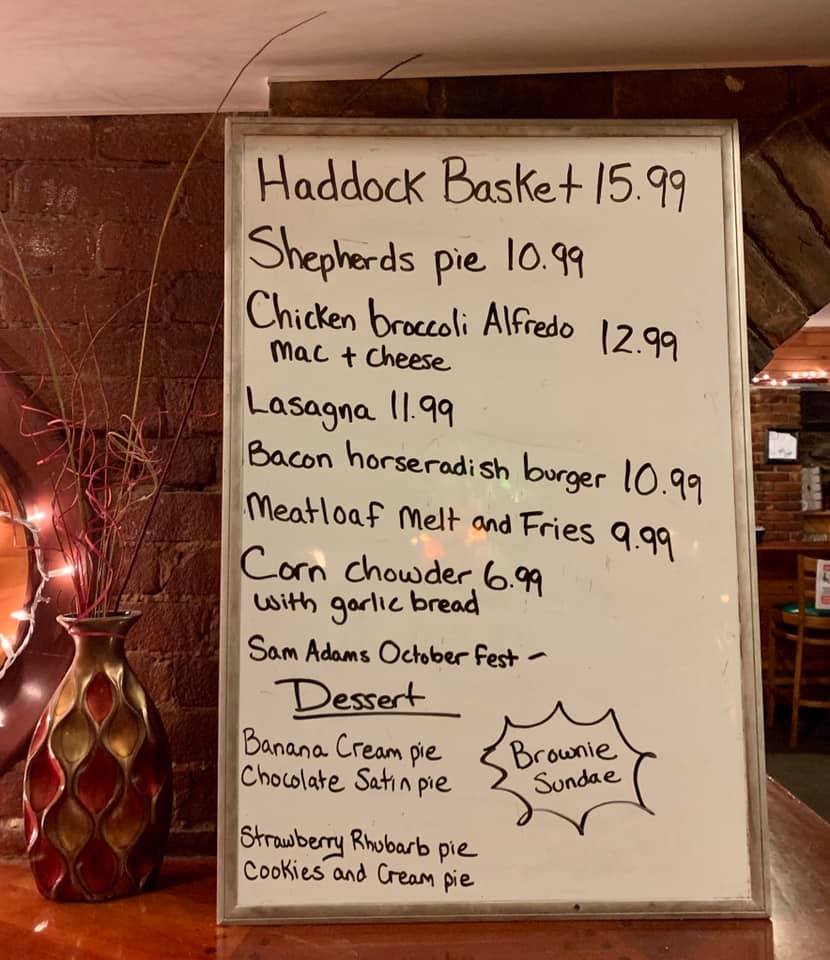 Haddock Basket 15.99
Shepherds pie 10.99
Chicken broccoli Alfredo 12.99
Mac + Cheese
Lasagna 11.99
Bacon horseradish burger 10.99
Meatloaf Melt and Fries 9.99
Corn chowder 6.99
with garlic bread
Sam Adams October Fest -
Dessert
Banana Cream pie
Chocolate Satin pie
Brownie
Sundae
Strawberry Rhubarb pie
Cookies and Cream pie